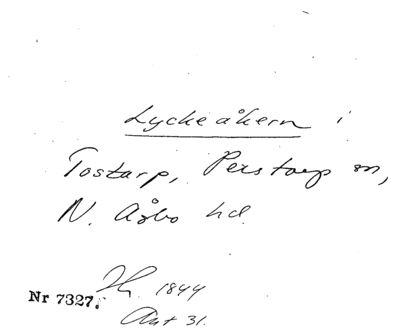 Lyckeåkern i
Tostarp, Perstorp sn,
N. Åsbo hd.
1844
Nr 7327.
Akt 31.